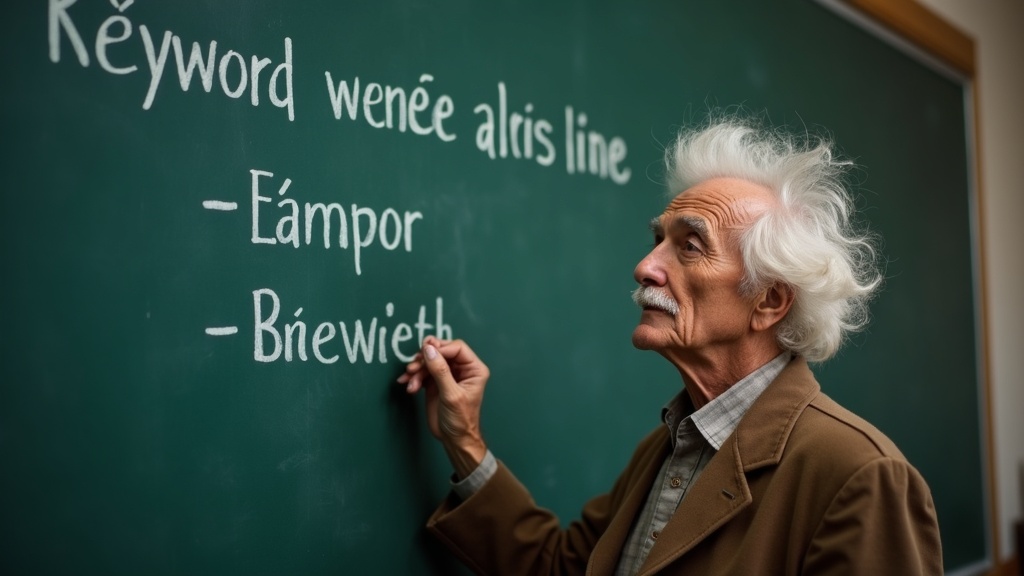 Kěyword wenēe alris line
- Eámpor
- Bńewieth